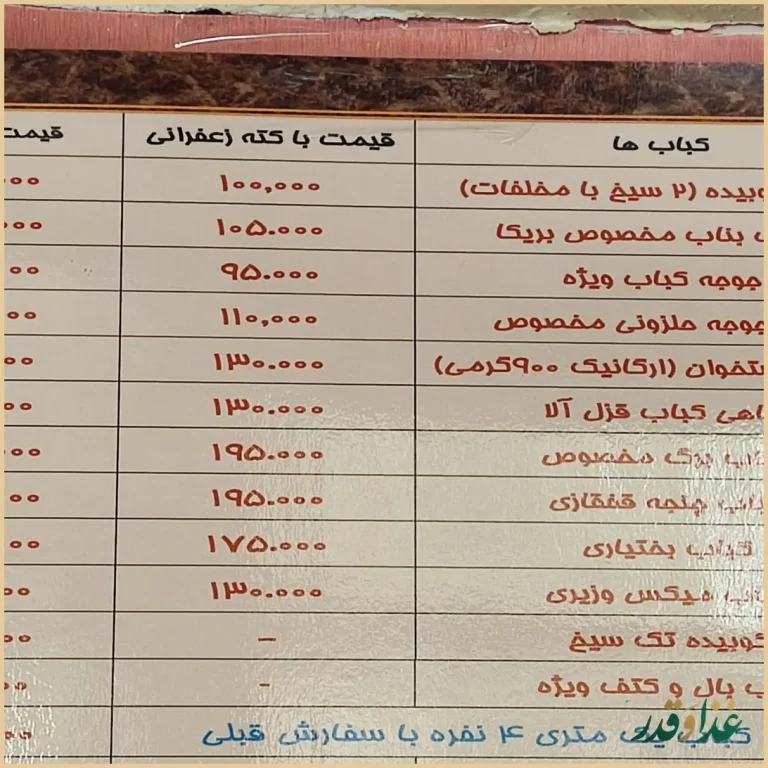 کباب ها قیمت با کته زعفرانی قیمت
وبیده (۲ سیخ با مخلفات) ۱۰۰,۰۰۰ ۰۰۰
بناب مخصوص بریکا ۱۰۵.۰۰۰ ۰۰۰
جوجه کباب ویژه ۹۵.۰۰۰ ۰۰
جوجه ملزونی مخصوص ۱۱۰,۰۰۰ ۰۰
ستخوان (ارگانیک ۹۰۰گرمی) ۱۳۰.۰۰۰ ۰۰
اهی کباب قزل آلا ۱۳۰.۰۰۰ ۰۰
برگ مخصوص ۱۹۵.۰۰۰ ۰۰۰
پنجه قفقازی ۱۹۵.۰۰۰ ۰۰
کباب بختیاری ۱۷۵.۰۰۰ ۰۰
میکس وزیری ۱۳۰.۰۰۰ ۰۰
کوبیده تک سیخ – ۰۰
ب بال و کتف ویژه - ۰۰
کباب متری ۴ نفره با سفارش قبلی ۰۰
غذا و قدر